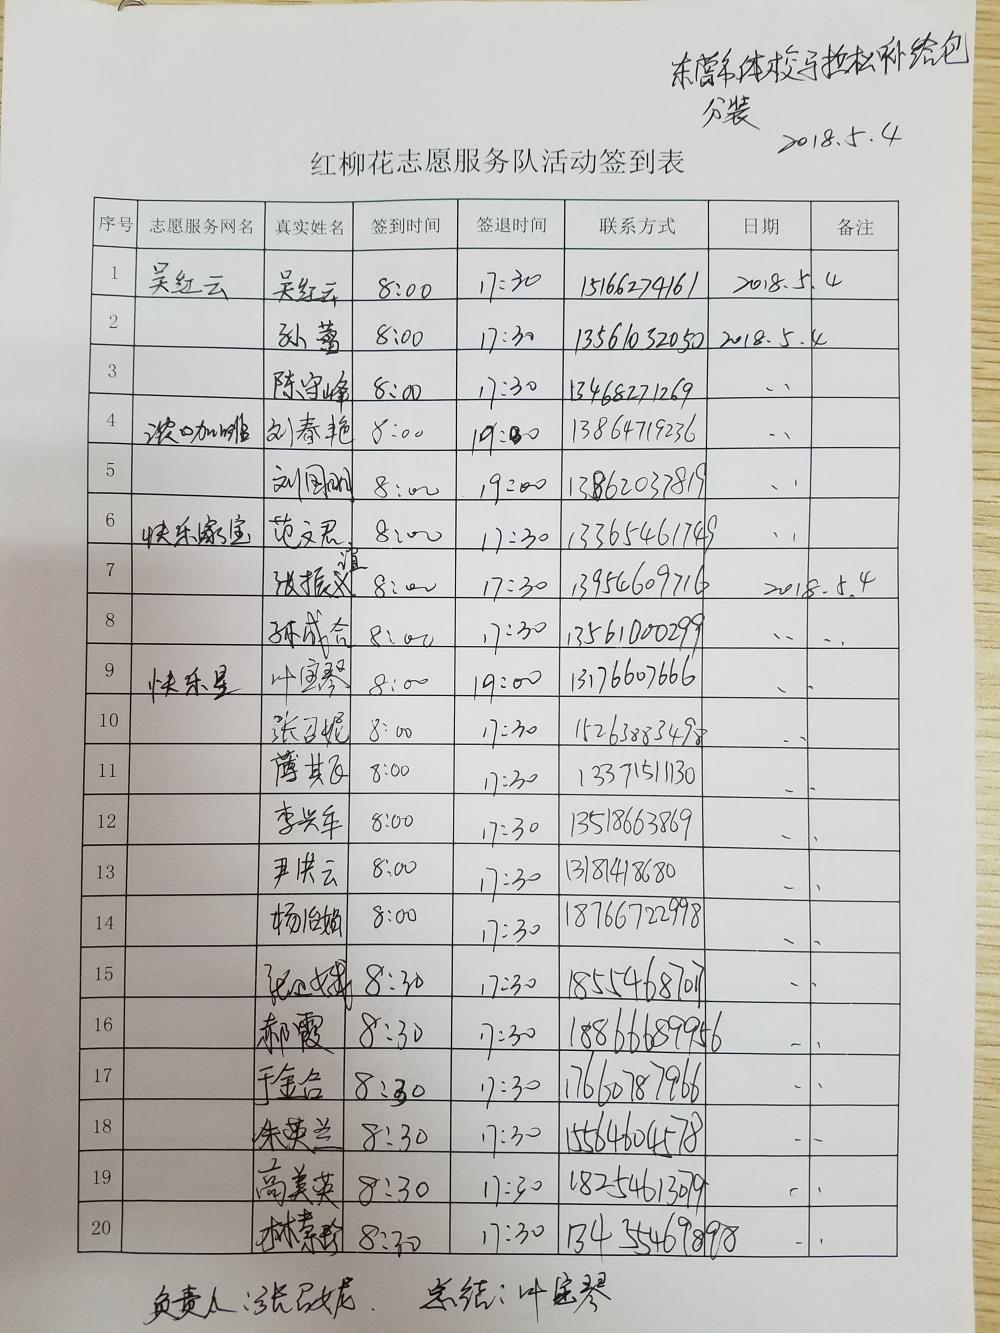 东营市体校马拉松补给包
分装
2018.5.4
红柳花志愿服务队活动签到表
序号 志愿服务网名 真实姓名 签到时间 签退时间 联系方式 日期 备注
1 吴红云 吴红云 8:00 17:30 15166274161 2018.5.4
2 孙蕾 8:00 17:30 13561032050 2018.5.4
3 陈守峰 8:00 17:30 13468271269 、、
4 浓口咖啡 刘春艳 8:00 19:00 13864719236 、、
5 刘国明 8:00 19:00 13862037819 、、
6 快乐家宝 范文君 8:00 17:30 13365461749 、、
7 张振谊 8:00 17:30 13954609716 2018.5.4
8 孙成合 8:00 17:30 13561000299 、、
9 快乐星 叶宝琴 8:00 19:00 13176607666 、、
10 张召妮 8:00 17:30 15263883498 、、
11 8:00 17:30 13371511130 、、
12 李兴军 8:00 17:30 13518663869 、、
13 尹洪云 8:00 17:30 13181418680 、、
14 8:00 17:30 18766722998 、、
15 8:30 17:30 、、
16 郝霞 8:30 17:30 18866689956 、、
17 于金合 8:30 17:30 17660787966 、、
18 朱英兰 8:30 17:30 15564604578 、、
19 高美英 8:30 17:30 18254613019 、、
20 林素珍 8:30 17:30 、、
负责人:张召妮. 总结:叶宝琴